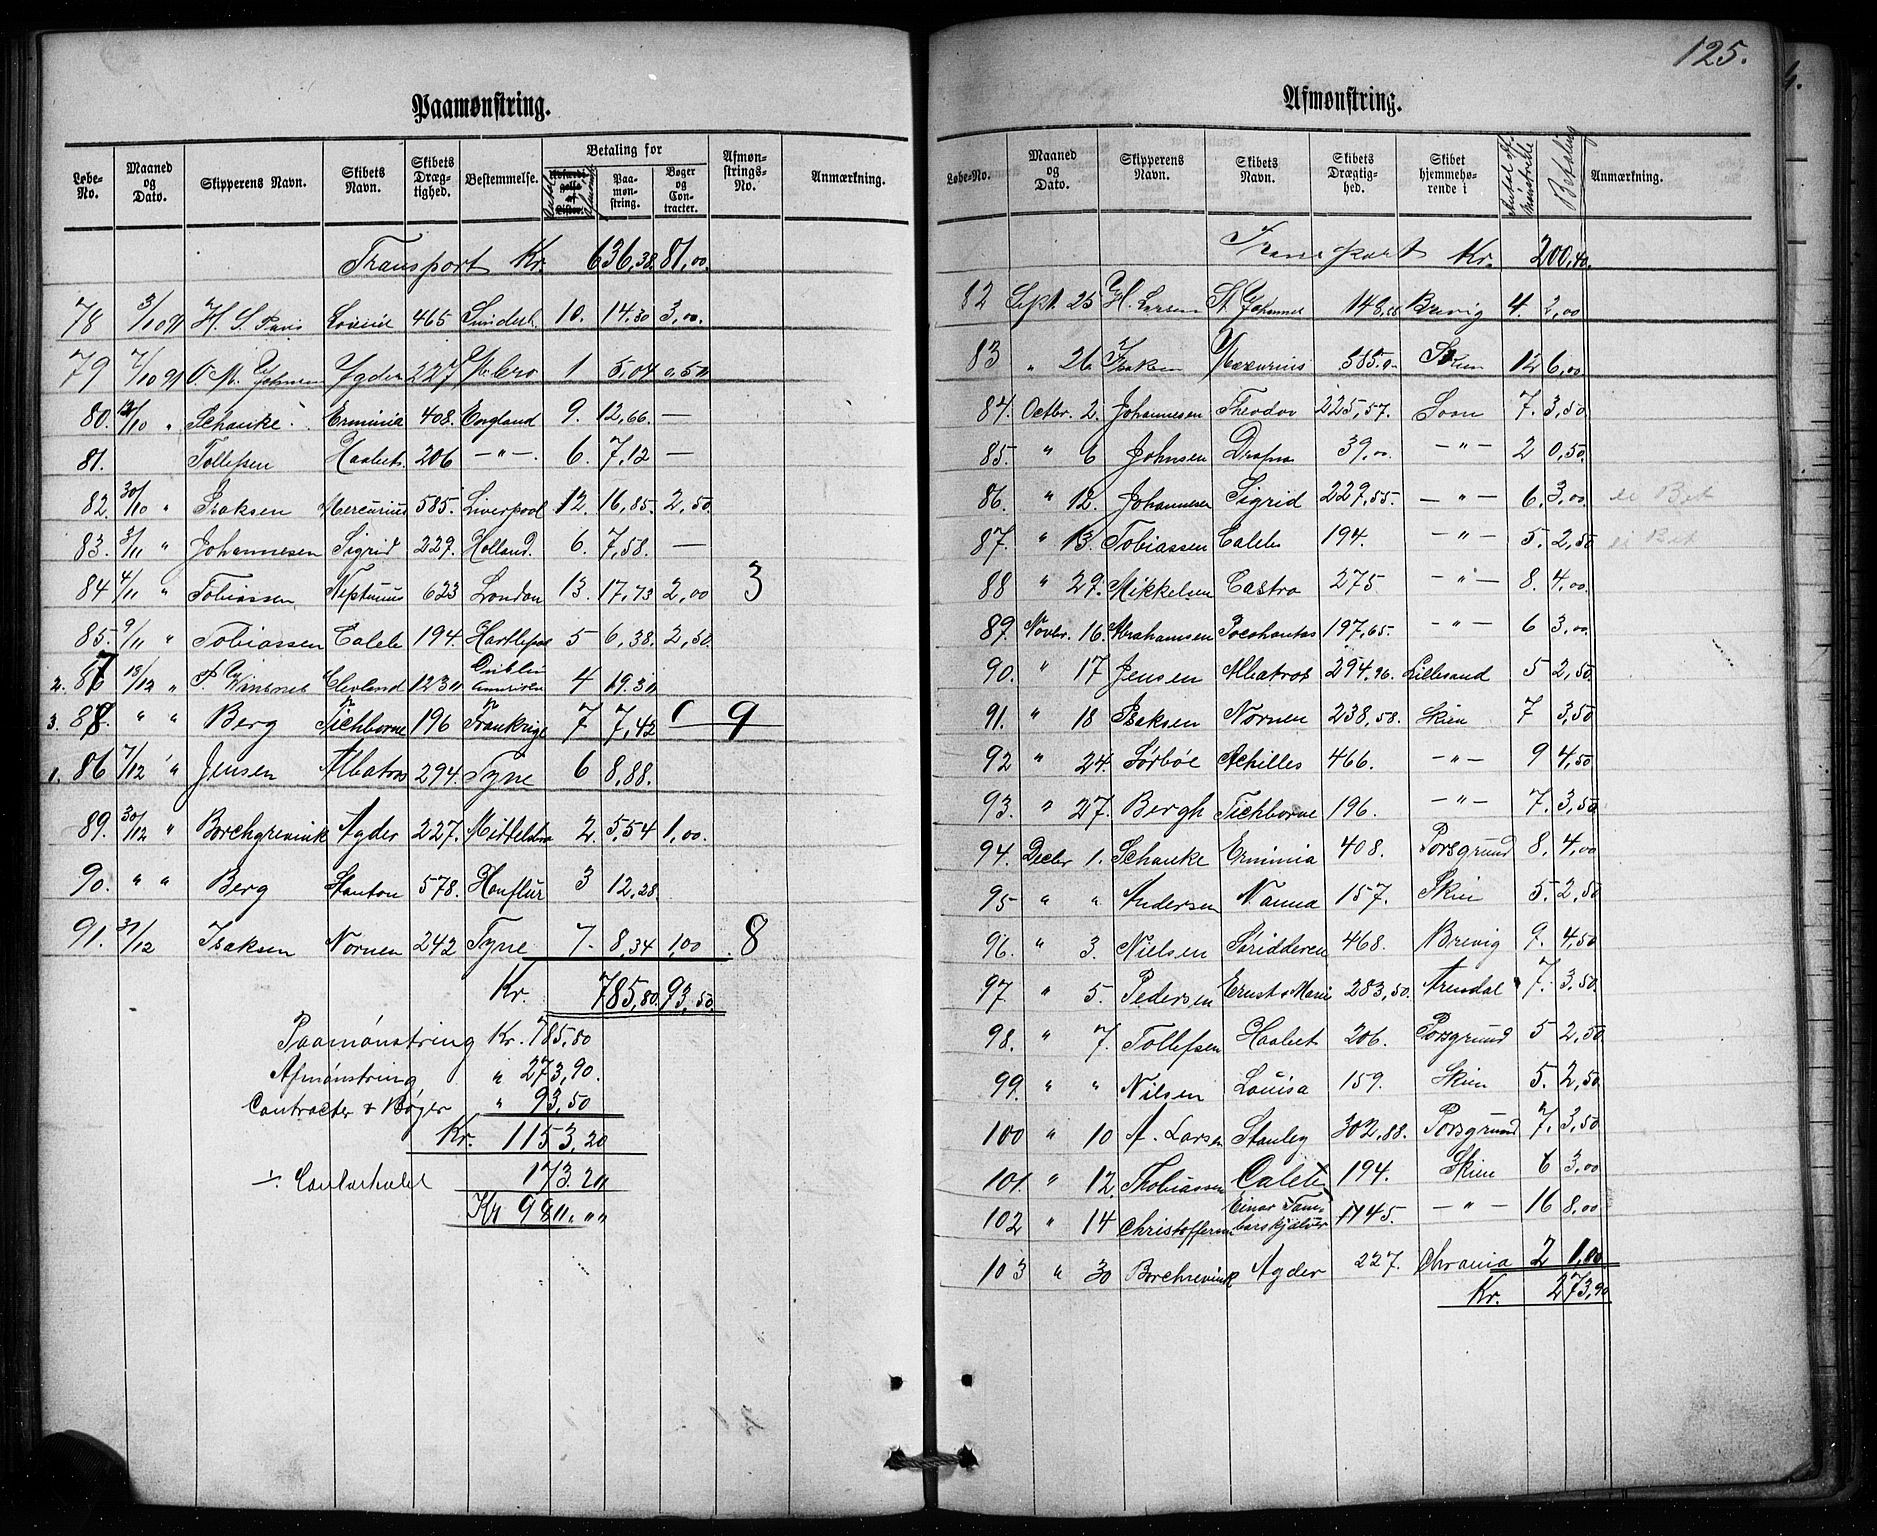 125.
Paamønstring.
Løbe-No. Maaned og Dato. Skipperens Navn. Skibets Navn. Skibets Dræg-tighed. Bestemmelse. Betaling for Paa-møn-string. Bøger og Con-tracter. Afmøn-strings-No. Anmærkning.
Transport Kr 636,38. 81,00.
78 3/10 91 H. S. 465 10. 14.30 3,00.
79 7/10 91 O. M. Johnsen Agder 227 1 5,04 0,50
80. 12/10 " Schanke Erminia 408. England 9. 12,66. —
81. Tollefsen Haabet 206 — " — 6. 7,12 —
82. 30/10 " Isaksen Mercurius 585. Liverpool 12. 16,85. 2,50.
83. 3/11 " Johannesen Sigrid 229. Holland. 6. 7,58. —
84 4/11 " Tobiassen Neptunus 623 London 13. 17,73 2,00 3
85. 9/11 " Tobiassen Caleb 194. Hartlepool 5 6,38. 2,50.
2. 87 19/12 " P. Winsnes Clevland 1230 Dublin 4 19.30
3. 88. " " Berg Tichborne 196 Frankrige 7 7,42 9
1. 86 7/12 " Jensen Albatros 294. Tyne 6 8,88.
89. 30/12 " Borchgrevink Agder 227. 2. 5,54 1,00.
90. " " Berg Stanton 578. Honflur 3 12,28.
91. 31/12 Isaksen Nornen 242 Tyne 7. 8,34 1,00 8
Kr. 785,80. 93,50.
Paamønstring Kr. 785,80
Afmønstring " 273,90.
Contracter & Bøger " 93,50
Kr. 1153,20
÷ Contorhold 173.20
Kr 980.""
Afmønstring.
Løbe-No. Maaned og Dato. Skipperens Navn. Skibets Navn. Skibets Drægtig-hed. Skibet hjemmehø-rende i Antal af-mønstrede Betaling Anmærkning.
Transport Kr. 200,40.
82 Sept. 25 H. Larsen St Johannes 148, Brevig 4. 2,00
83 " 26 Isaksen Mercurius 585. Skien 12 6,00
84. Octbr. 2. Johannesen Theodor 225,57. Soon 7. 3,50
85. " 6 Johnsen Drafna 39.00 — " — 2 0,50.
86 " 12. Johannesen Sigrid 229,55. — " — 6. 3,00. ei Bet
87. " 13. Tobiassen Caleb 194. — " — 5. 2,50 ei Bet
88 " 29. Mikkelsen Castro 275 — " — 8. 4,00.
89. Novbr. 16. Abrahamsen Pocohontas 197,65. — " — 6 3,00.
90. " 17 Jensen Albatros 294.96. Lillesand 5 2,50.
91. " 18 Isaksen Nornen 238,58. Skien 7 3,50
92 " 24. Sørbøe Achilles 466. — " — 9 4,50
93. " 27. Bergh Tichborne 196. — " — 7. 3,50
94. Decbr 1. Schanke Erminia 408. Porsgrund 8. 4,00
95 " " Andersen Nanna 157. Skien 5. 2,50
96. " 3. Nielsen 468. Brevig 9. 4,50
97 " 5. Pedersen Ernst & Marie 283,50. Arendal 7. 3,50.
98. " 7. Tollefsen Haabet 206. Porsgrund 5 2,50
99. " " Nilsen Louisa 159. Skien 5. 2,50
100 " 10 A. Larsen Stanley 302,88. Porsgrund 7. 3,50
101 " 12. Thobiassen Caleb 194. Skien 6 3,00
102 " 14 Christoffersen Einar Tam-barskjælver 1145. — " — 16 8,00
103 " 30 Borchrevink Agder 227. Chrania 2 1,00.
Kr. 273,90